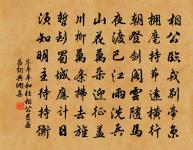 相公臨戎別帝京
擁麾持節遠橫行
朝登劍閣雲隨馬
夜渡巴江雨洗兵
山花萬朵迎征蓋
川柳千條拂去旌
暫到蜀城應計日
須知明主待持衡
岑參奉和杜相公發益
昌詞典網集